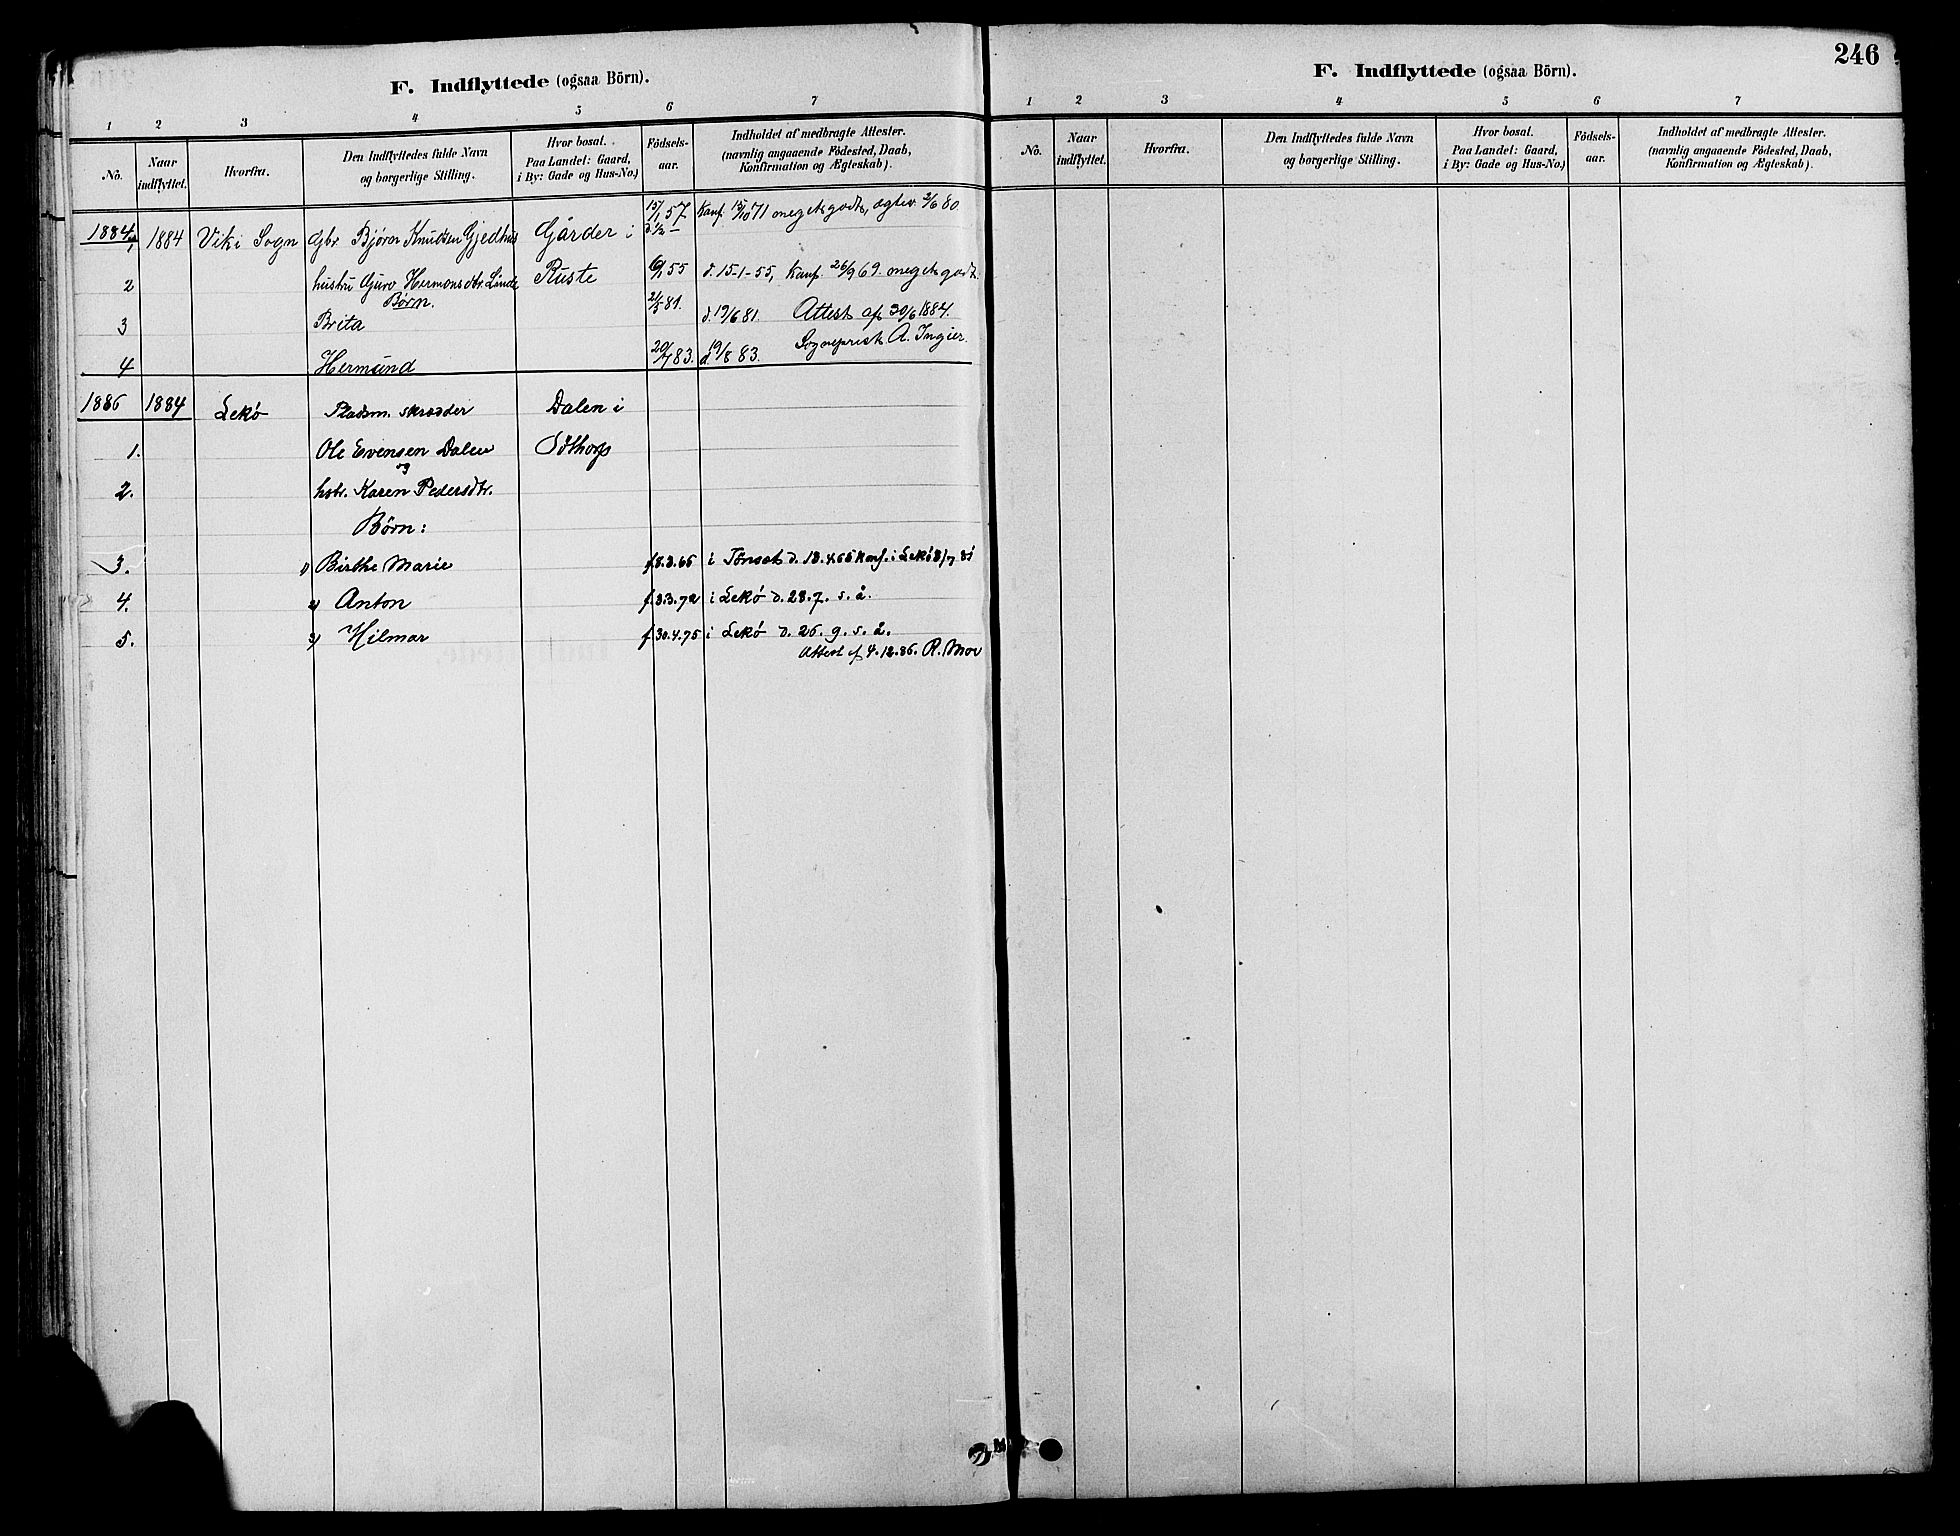 F. Indflyttede (ogsaa Börn).
1 2 3 4 5 6 7
No. Naar indflyttet. Hvorfra. Den Indflyttedes fulde Navn og borgerlige Stilling. Hvor bosat. Paa Landet: Gaard, i By: Gade og Hus-No.) Födsels-aar. Indholdet af medbragte Attester. (navnlig angaaende Födested, Daab, Konfirmation og Ægteskab).
1884 1 1884 Vik i Sogn Gbr. Bjørn Knudsen Gjedhus Gårder i 15/1 57 Konf. 15/10 71 meget godt, ægtev. 2/6 80.
2 hustru Guro Hermonsdtr. Linde Ruste 6/1 55 d. 15-1-55, Konf. 26/9 69. meget godt.
Børn.
3 Brita 21/5 81. d. 19/6 81. Attest af 30/6 1884.
4 Hermund 20/7 83. d. 19/8 83. Sogneprest A. Ingier.
1886 1884 Lekø Pladsm. skrædder Dalen i
1. Ole Evensen Dalen Sothorp
og
2. hstr. Karen Pedersdtr.
Børn:
3. 1) Birthe Marie f. 8.3.65 i Tönset d. 18.4.65 Konf. i Lekö 3/7 81
4. 2) Anton f. 3.3.72 i Lekø d. 28.7. s. å.
5. 3) Hilmar f. 30.4.75 i Lekø d. 26. 9. s. å.
Attest af 4.12.86. R. Moe
F. Indflyttede (ogsaa Börn). 246
1 2 3 4 5 6 7
No. Naar indflyttet. Hvorfra. Den Indflyttedes fulde Navn og borgerlige Stilling. Hvor bosat. Paa Landet: Gaard, i By: Gade og Hus-No.) Födsels-aar. Indholdet af medbragte Attester. (navnlig angaaende Födested, Daab, Konfirmation og Ægteskab).